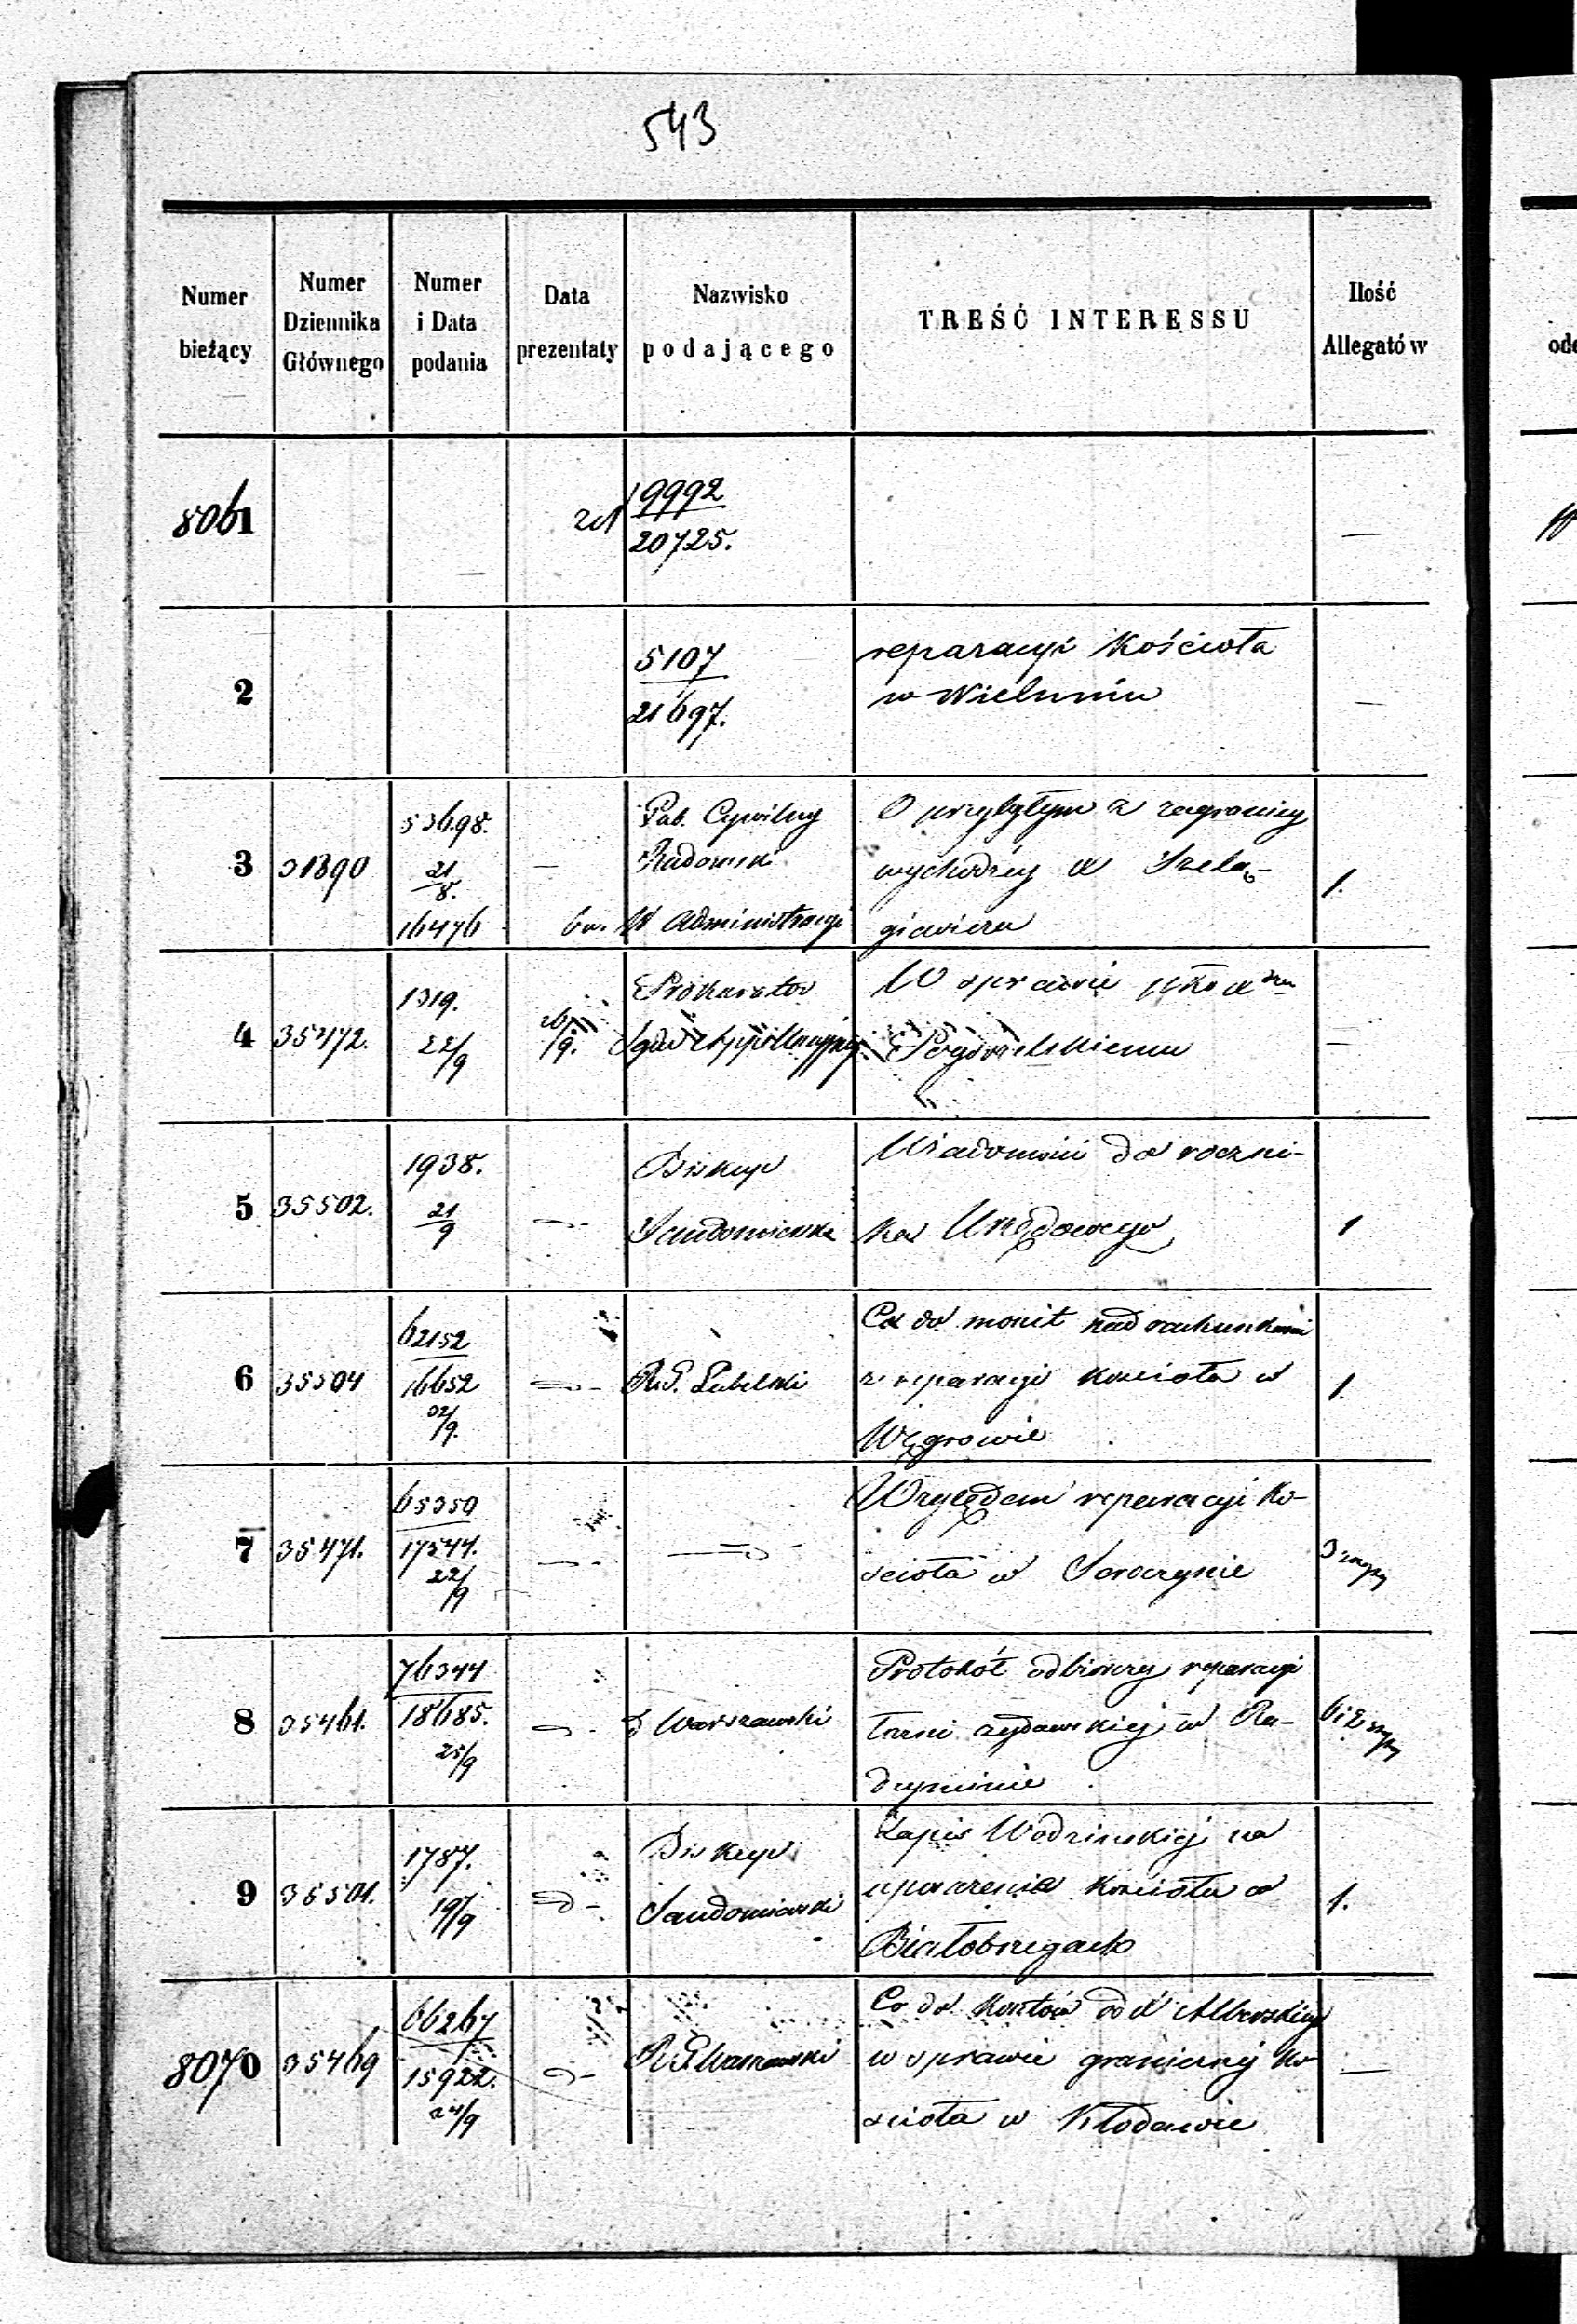 543
Numer bieżący
Numer Dziennika Głównego
Numer i Data podania
Data prezentaty
Nazwisko podającego
TREŚĆ INTERESSU
Ilość Allegatów
8061
19992
20725.
—
2
5107
21697.
reparacyi Kościoła
w Wieluniu
—
3
31390
53698.
21/8.
16476
—
Cywilny
Radomski
W Administracyi
O przybyłym z zagranicy
wychodźcy
1.
4
35472.
1319.
22/9
26/9.
Prokurator
Sądu Appellacyjnego
W sprawie
—
5
35502.
1938.
21/9
Biskup
Sandomierski
Wiadomości do roczni-
ka Urzędowego
1
6
35504
62152
16652
22/9.
R.G. Lubelski
Co do monit nad rachunkami
z reparacyi Kościoła w
Węgrowie
1.
7
35471.
65350
17544.
22/9
Względem reparacyi Ko-
ścioła w
3
8
35461.
76344
18685.
25/9
Warszawski
Protokół odbiorczy reparacyi
łaźni żydowskiej w Ra-
dyminie
9
35501.
1787.
19/9
Biskup
Sandomierski
Zapis Wodzińskiej na
Kościoła w
Białobrzegach
1.
8070
35469
66267
15922.
24/9
R G Warszawski
Co do kosztów od
w sprawie granicznej Ko-
ścioła w Kłodawie
—